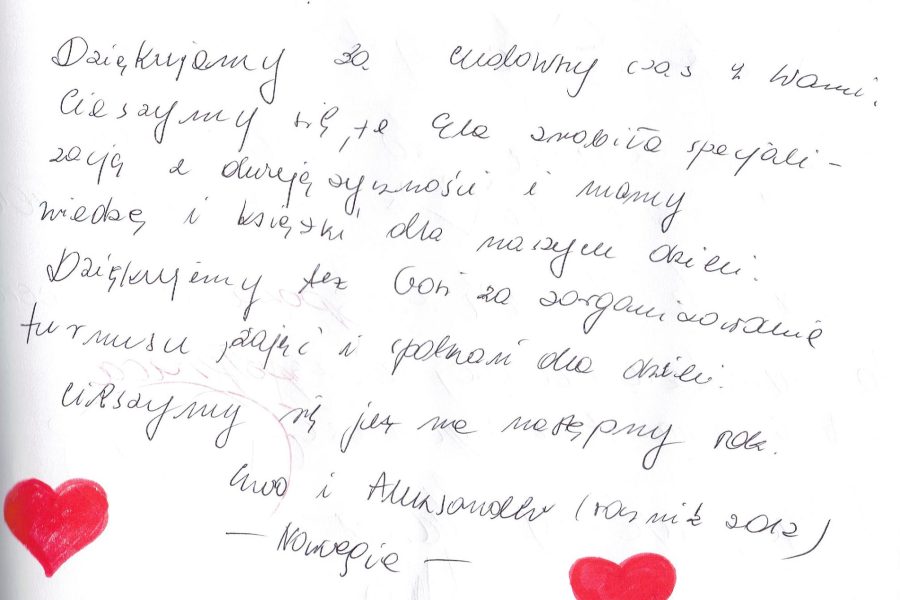 Dziękujemy za cudowny czas z Wami.
Cieszymy się, że Ela zrobiła specjali-
zację z dwujęzyczności i mamy
wiedzę i książki dla naszych dzieci.
Dziękujemy też Gosi za zorganizowanie
turnusu, zajęć i spotkań dla dzieci.
Cieszymy się już na następny rok.
Ewa i Aleksander (rocznik 2012)
- Norwegia -